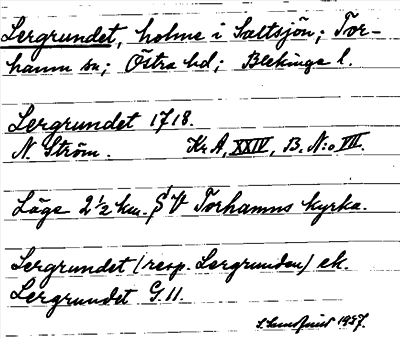 Lergrundet, holme i Saltsjön; Tor-
hamn sn; Östra hd; Blekinge l.
Lergrundet 1718.
N. Ström. Kr. A, XXIV, B. N:o VII.
Läge 2 1/2 km. S V Torhamns kyrka.
Lergrundet (resp. Lergrunden) ek.
Lergrundet G. 11.
1937